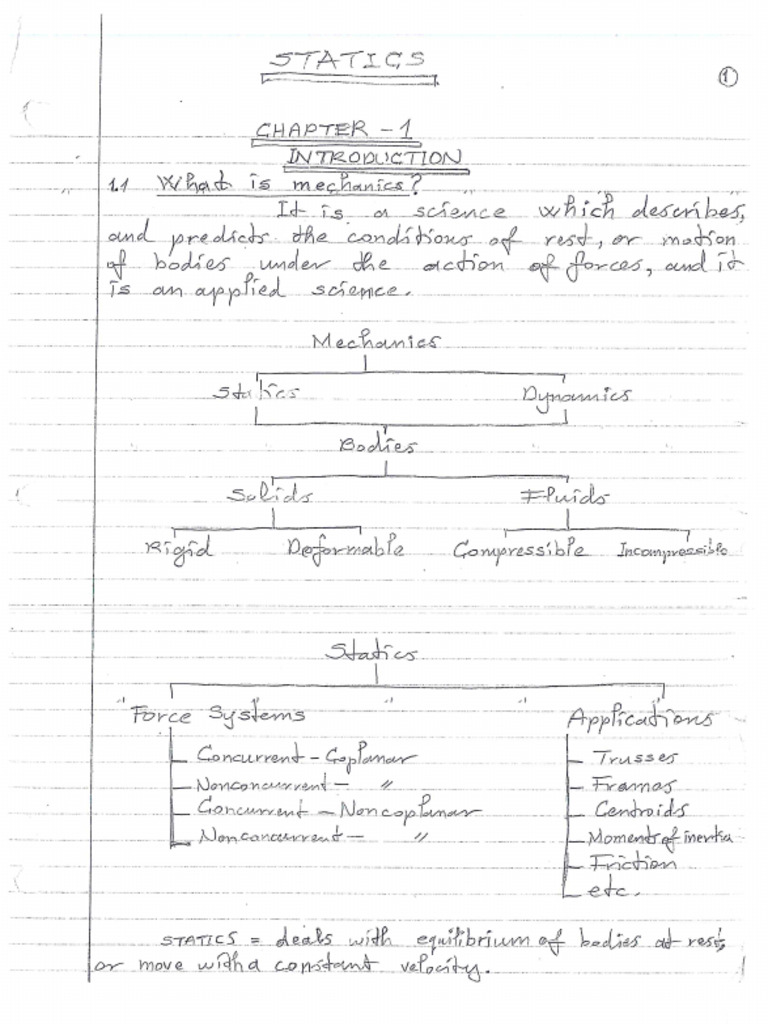 STATICS
1
CHAPTER - 1
INTRODUCTION
1.1 What is mechanics?
It is a science which describes,
and predicts the conditions of rest, or motion
of bodies under the action of forces, and it
is an applied science.
Mechanics
Statics Dynamics
Bodies
Solids Fluids
Rigid Deformable Compressible Incompressible
Statics
Force Systems Applications
Concurrent - Coplanar Trusses
Nonconcurrent - " Frames
Concurrent - Noncoplanar Centroids
Nonconcurrent - " Moments of inertia
Friction
etc.
STATICS = deals with equilibrium of bodies at rest,
or move with a constant velocity.